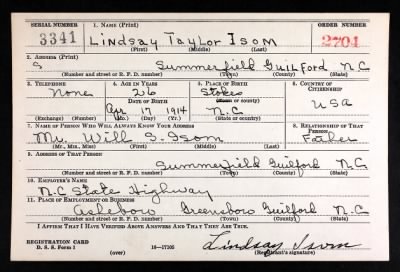 SERIAL NUMBER 1. NAME (Print) ORDER NUMBER
3341 Lindsay Taylor Isom 2704
(First) (Middle) (Last)
2. ADDRESS (Print)
Summerfield Guilford N.C
(Number and street or R. F. D. number) (Town) (County) (State)
3. TELEPHONE 4. AGE IN YEARS 5. PLACE OF BIRTH 6. COUNTRY OF CITIZENSHIP
None 26 Stokes
DATE OF BIRTH (Town or county) USA
Apr 17 1914 N.C
(Exchange) (Number) (Mo.) (Day) (Yr.) (State or country)
7. NAME OF PERSON WHO WILL ALWAYS KNOW YOUR ADDRESS 8. RELATIONSHIP OF THAT PERSON
Mr. Will S. Isom Father
(Mr., Mrs., Miss) (First) (Middle) (Last)
9. ADDRESS OF THAT PERSON
Summerfield Guilford N.C
(Number and street or R. F. D. number) (Town) (County) (State)
10. EMPLOYER'S NAME
N.C State Highway
11. PLACE OF EMPLOYMENT OR BUSINESS
Asheboro Greensboro Guilford N.C
(Number and street or R. F. D. number) (Town) (County) (State)
I AFFIRM THAT I HAVE VERIFIED ABOVE ANSWERS AND THAT THEY ARE TRUE.
REGISTRATION CARD
D. S. S. Form 1 (over) 16—17105 Lindsay Isom